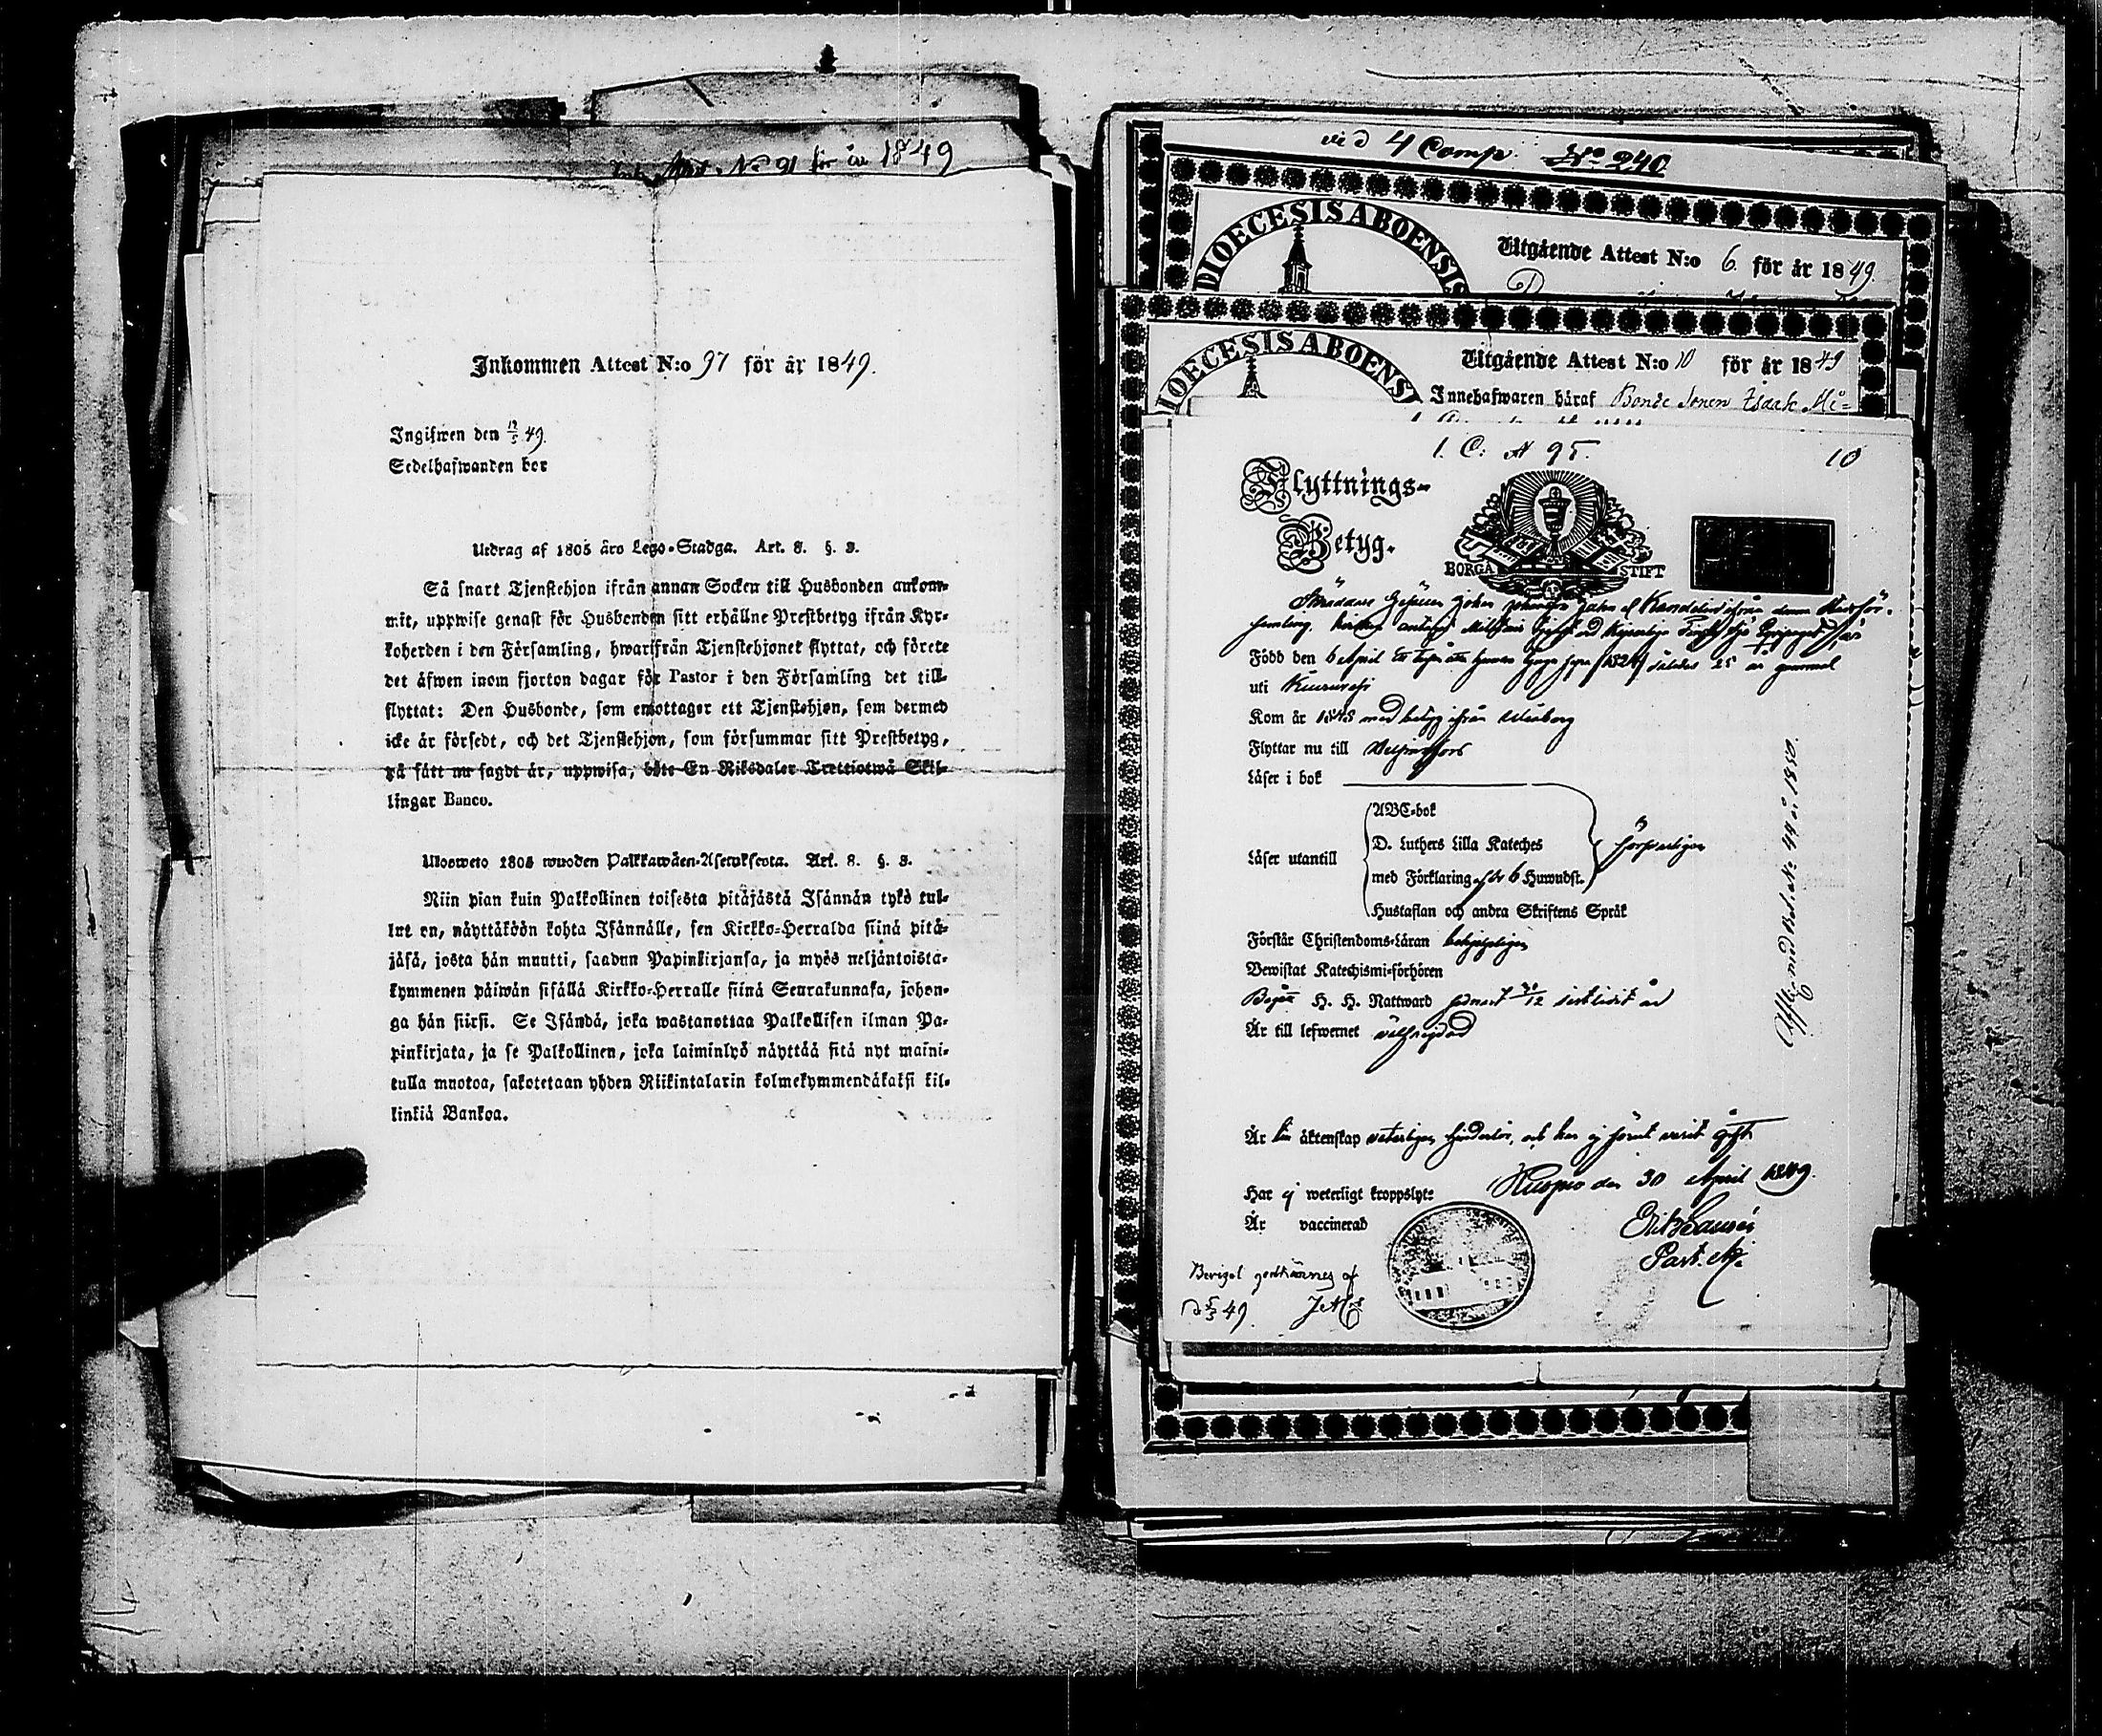 Ink. Attest No 91 för år 1849
Inkommen Attest N:o 97 för år 1849.
Ingifwen den 12/5 49.
Sedelhafwanden bor
Utdrag af 1805 åro Lego-Stadga. Art. 8. §. 3.
Så snart Tjenstehjon ifrån annan Socken till Husbonden ankom-
mit, uppwise genast för Husbonden sitt erhållne Prestbetyg ifrån Kyr-
koherden i den Församling, hwarifrån Tjenstehjonet flyttat, och förete
det äfwen inom fjorton dagar för Pastor i den Församling det till-
flyttat: Den Husbonde, som emottager ett Tjenstehjon, som dermed
icke är försedt, och det Tjenstehjon, som försummar sitt Prestbetyg,
på sätt nu sagdt är, uppwisa, böte En Riksdaler Trettiotwå Skil-
lingar Banco.
Ulosweto 1805 wuoden Palkkawäen-Asetuksesta. Art. 8. §. 3.
Niin pian kuin Palkollinen toisesta pitäjästä Isännän tykö tul-
lut on, näyttäköön kohta Isännälle, sen Kirkko-Herralda siinä pitä-
jäsä, josta hän muutti, saadun Papinkirjansa, ja myös neljäntoista-
kymmenen päiwän sisällä Kirkko-Herralle siinä Seurakunnasa, johon-
ga hän siirsi. Se Isändä, joka wastanottaa Palkollisen ilman Pa-
pinkirjata, ja se Palkollinen, joka laiminlyö näyttää sitä nyt maini-
tulla muotoa, sakotetaan yhden Riikintalarin kolmekymmendäkaksi kil-
linkiä Bankoa.
vid 4 Comp. No 240
DIOECESIS ABOENSIS
Utgående Attest N:o 6. för år 1849.
DIOECESIS ABOENS
Utgående Attest N:o 10 för år 1849
Innehafwaren häraf Bonde Sonen Isaak Mi=
1. C: A 95.
10
Flyttnings-
Betyg.
BORGÅ STIFT
Skräddare Gesällen Johan Kandelin ifrån denna Stadsför-
samling,
Född den 6 April (1824) således 25 år gammal
uti
Kom år 1848 med betyg ifrån Uleåborg
Flyttar nu till Helsingfors
Läser i bok
ABC-bok
D. Luthers Lilla Kateches
Läser utantill försvarligen
med Förklaring och 6 Huwudst.
Hustaflan och andra Skriftens Språk
Förstår Christendoms-Läran behjelpligen
Bewistat Katechismi-förhören
Begått H. H. Nattward sednast 31/12 sistlidit år
Är till lefwernet välfrejdad
Är till äktenskap veterligen hinderlös, och har ej förut varit gift
Har ej weterligt kroppslyte
Kuopio den 30 April 1849.
Är vaccinerad
Past.
Beviset godkännes af
49.
Afflyttad Bet. No 44 år 1850.